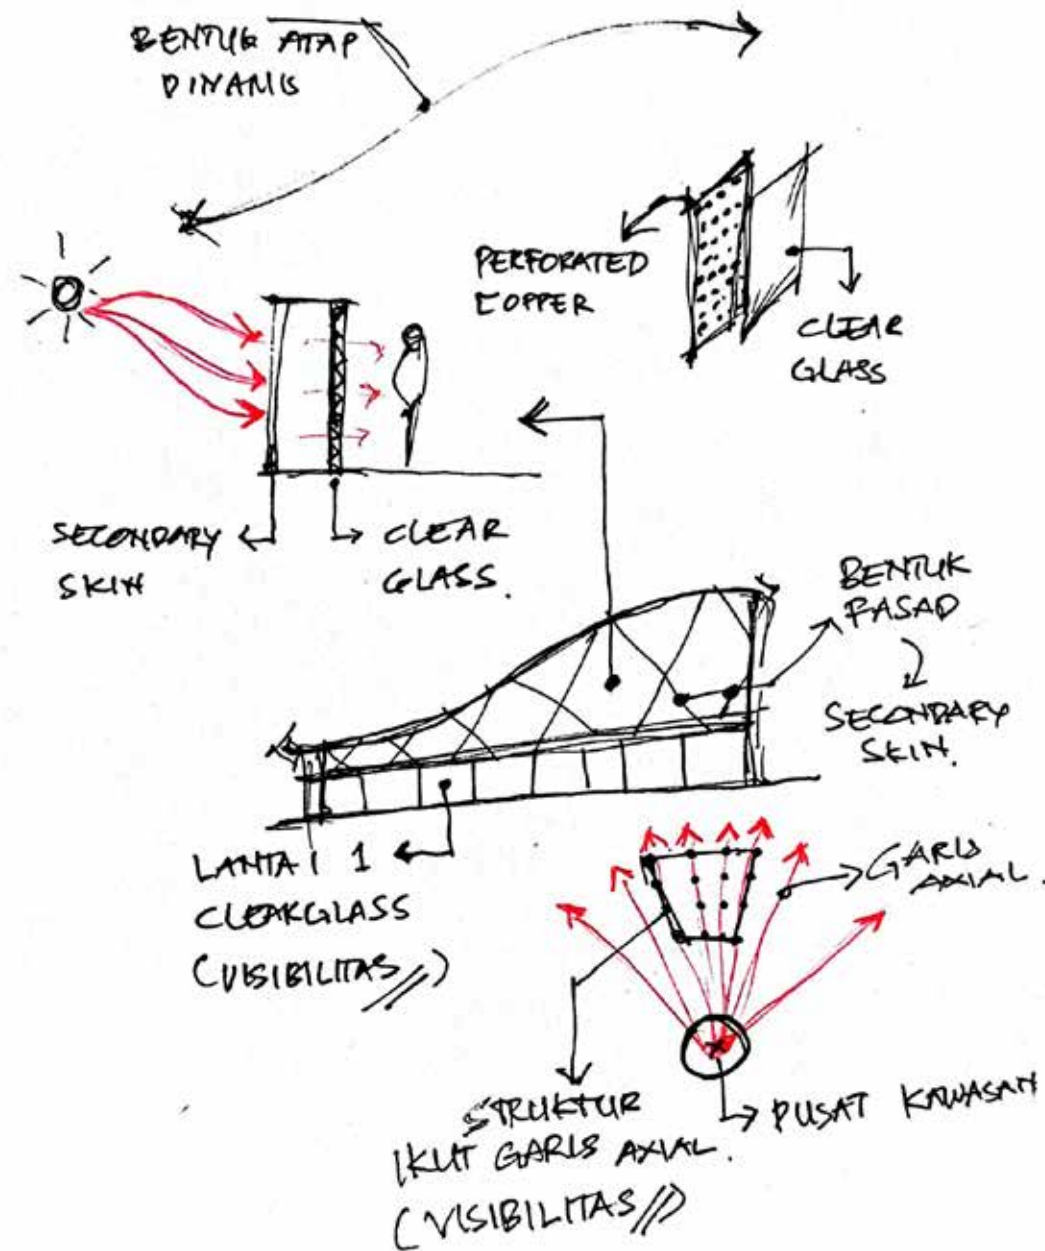 BENTUK ATAP
DINAMIS
PERFORATED
COPPER
CLEAR
GLASS
SECONDARY
SKIN
CLEAR
GLASS.
BENTUK
FASAD
SECONDARY
SKIN.
LANTAI 1
CLEARGLASS
(VISIBILITAS//)
GARIS
AXIAL.
STRUKTUR
IKUT GARIS AXIAL.
(VISIBILITAS//)
PUSAT KAWASAN